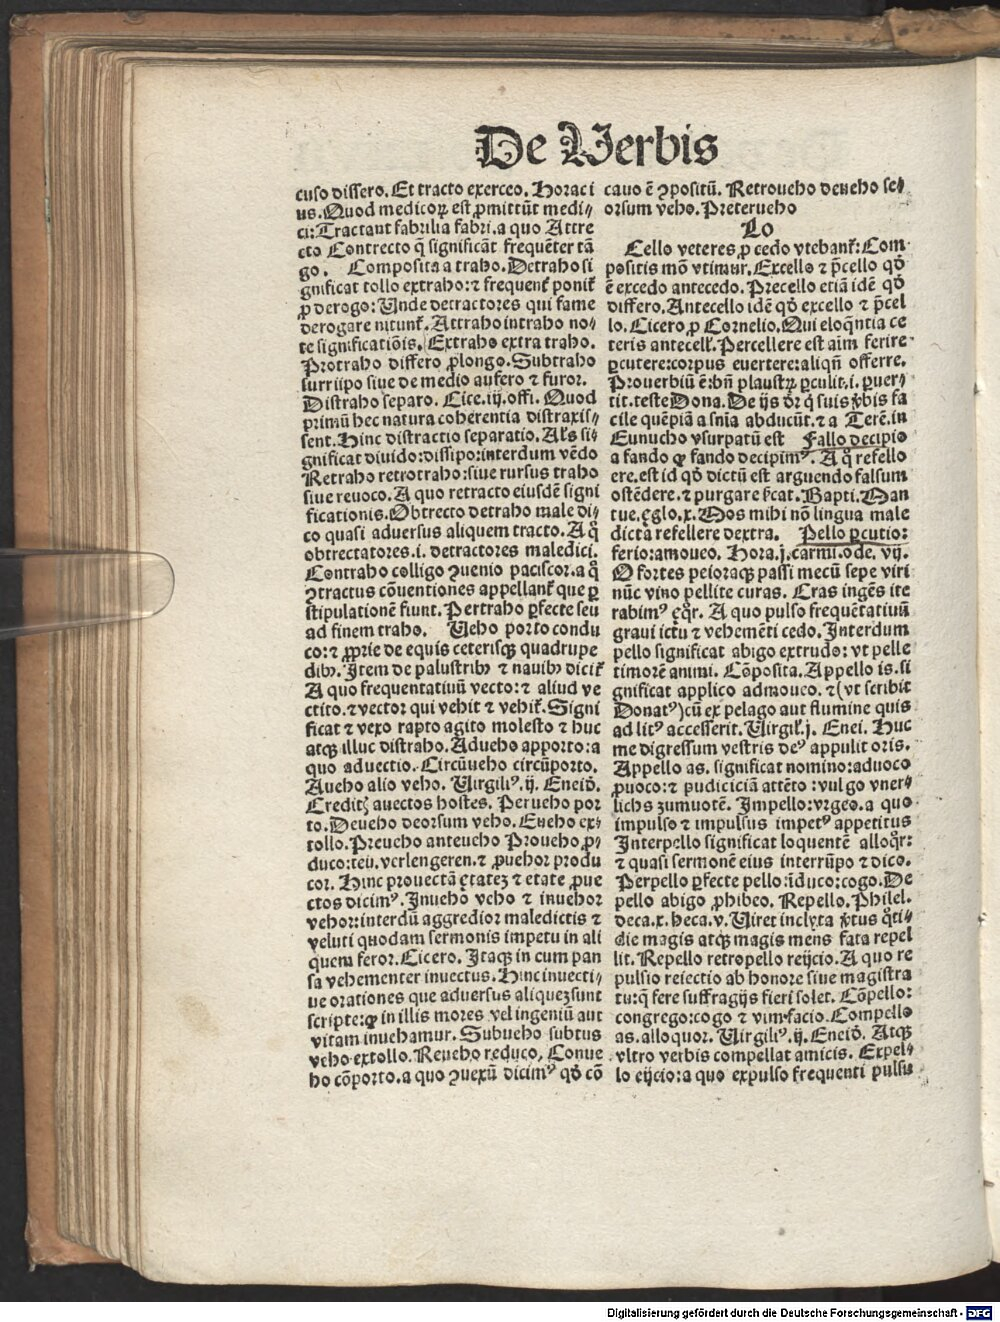 De Verbis
cuso dissero. Et tracto exerceo. Horaci
us. Quod medicoꝝ est ꝓmittūt medi⸗
ci: Tractant fabrilia fabri. a quo Attre
cto Contrecto q̄ significāt frequēter tā
go. Composita a traho. Detraho si
gnificat tollo extraho: ⁊ frequent̄ ponit̄
ꝓ derogo: Unde detractores qui fame
derogare nitunt̄. Attraho intraho no⸗
te significatiōis. Extraho extra traho.
Protraho differo ꝓlongo. Subtraho
surripo siue de medio aufero ⁊ furor.
Distraho separo. Cice. iij. offi. Quod
primū hec natura coherentia distraxis⸗
sent. Hinc distractio separatio. Al̓s si⸗
gnificat diuido: dissipo: interdum vēdo
Retraho retrotraho: siue rursus traho
siue reuoco. A quo retracto eiusdē signi
ficationis. Obtrecto detraho male di⸗
co quasi aduersus aliquem tracto. A q̊
obtrectatores .i. detractores maledici.
Contraho colligo ꝯuenio paciscor. a q̊
ꝯtractus cōuentiones appellant̄ que ꝑ
stipulationē fiunt. Pertraho ꝑfecte seu
ad finem traho. Veho porto condu
co: ⁊ ꝓprie de equis ceterisqꝫ quadrupe
dibꝰ. Item de palustribꝰ ⁊ nauibꝰ dicit̄
A quo frequentatiuū vecto: ⁊ aliud ve
ctito. ⁊ vector qui vehit ⁊ vehit̄. Signi
ficat ⁊ vexo rapto agito molesto ⁊ huc
atqꝫ illuc distraho. Adueho apporto: a
quo aduectio. Circūueho circūporto.
Aueho alio veho. Virgiliꝰ. ij. Eneid̄.
Creditꝫ auectos hostes. Perueho por
to. Deueho deorsum veho. Eueho ex⸗
tollo. Preueho anteueho Proueho ꝓ⸗
duco: teu. verlengeren. ⁊ ꝓuehor produ
cor. Hinc prouectā ętateꝫ ⁊ etate ꝓue
ctos dicimꝰ. Inueho veho ⁊ inuehor
vehor: interdū aggredior maledictis ⁊
veluti quodam sermonis impetu in ali
quem feror. Cicero. Itaqꝫ in cum pan
sa vehementer inuectus. Hinc inuecti⸗
ue orationes que aduersus aliqueꝫ sunt
scripte: ꝙ in illis mores vel ingeniū aut
vitam inuehamur. Subueho subtus
veho extollo. Reueho reduco, Conue
ho cōporto. a quo ꝯuexū dicimꝰ qd̄ cō
cauo ē ꝯpositū. Retroueho deueho se⸗
orsum veho. Preterueho
Lo
Cello veteres ꝓ cedo vtebant̄: Com
positis mō vtimur. Excello ⁊ p̄cello qd̄
ē excedo antecedo. Precello etiā idē qd̄
differo. Antecello idē qd̄ excello ⁊ p̄cel
lo. Cicero ꝓ Cornelio. Qui eloq̄ntia ce
teris antecell̓. Percellere est aīm ferire
ꝑcutere: corpus euertere: aliqn̄ offerre.
Prouerbiū ē: bn̄ plaustꝝ ꝑculit .i. ꝑuer⸗
tit. teste Dona. De ijs dr̄ q̇ suis v̓bis fa
cile quēpiā a sn̄ia abducūt. ⁊ a Terē. in
Eunucho vsurpatū est Fallo decipio
a fando ꝙ fando decipimꝰ. A q̊ refello
ere. est id qd̄ dictū est arguendo falsum
ostēdere. ⁊ purgare
Bapti. Man
tue. ęglo. x. Mos mihi nō lingua male
dicta refellere dextra. Pello ꝑcutio:
ferio: amoueo. Hora. j. carmi. ode. vij.
O fortes peioraqꝫ passi mecū sepe viri
nūc vino pellite curas. Cras ingēs ite
rabimꝰ ęq̊r. A quo pulso frequētatiuū
graui ictu ⁊ vehemēti cedo. Interdum
pello significat abigo extrudo: vt pelle
timorē animi. Cōposita. Appello is. si
gnificat applico admoueo. ⁊ (vt scribit
Donatꝰ) cū ex pelago aut flumine quis
ad litꝰ accesserit. Virgil̓. j. Enei. Huc
me digressum vestris deꝰ appulit oris.
Appello as. significat nomino: aduoco
ꝓuoco: ⁊ pudiciciā attēto: vulgo vner⸗
lichs zumuotē. Impello: vrgeo. a quo
impulso ⁊ impulsus impetꝰ appetitus
Interpello significat loquentē alloq̊r:
⁊ quasi sermonē eius interrūpo ⁊ dico.
Perpello ꝑfecte pello: īduco: cogo. De
pello abigo ꝓhibeo. Repello. Philel.
deca. x. heca. v. Viret inclyta v̓tus q̊ti⸗
die magis atqꝫ magis mens fata repel
lit. Repello retropello reijcio. A quo re
pulsio reiectio ab honore siue magistra
tu: q̄ fere suffragijs fieri solet. Cōpello:
congrego: cogo ⁊ vim facio. Compello
as. alloquor. Virgiliꝰ. ij. Eneid̄. Atqꝫ
vltro verbis compellat amicis. Expel⸗
lo eijcio: a quo expulso frequenti pulsu
Digitalisierung gefördert durch die Deutsche Forschungsgemeinschaft - DFG